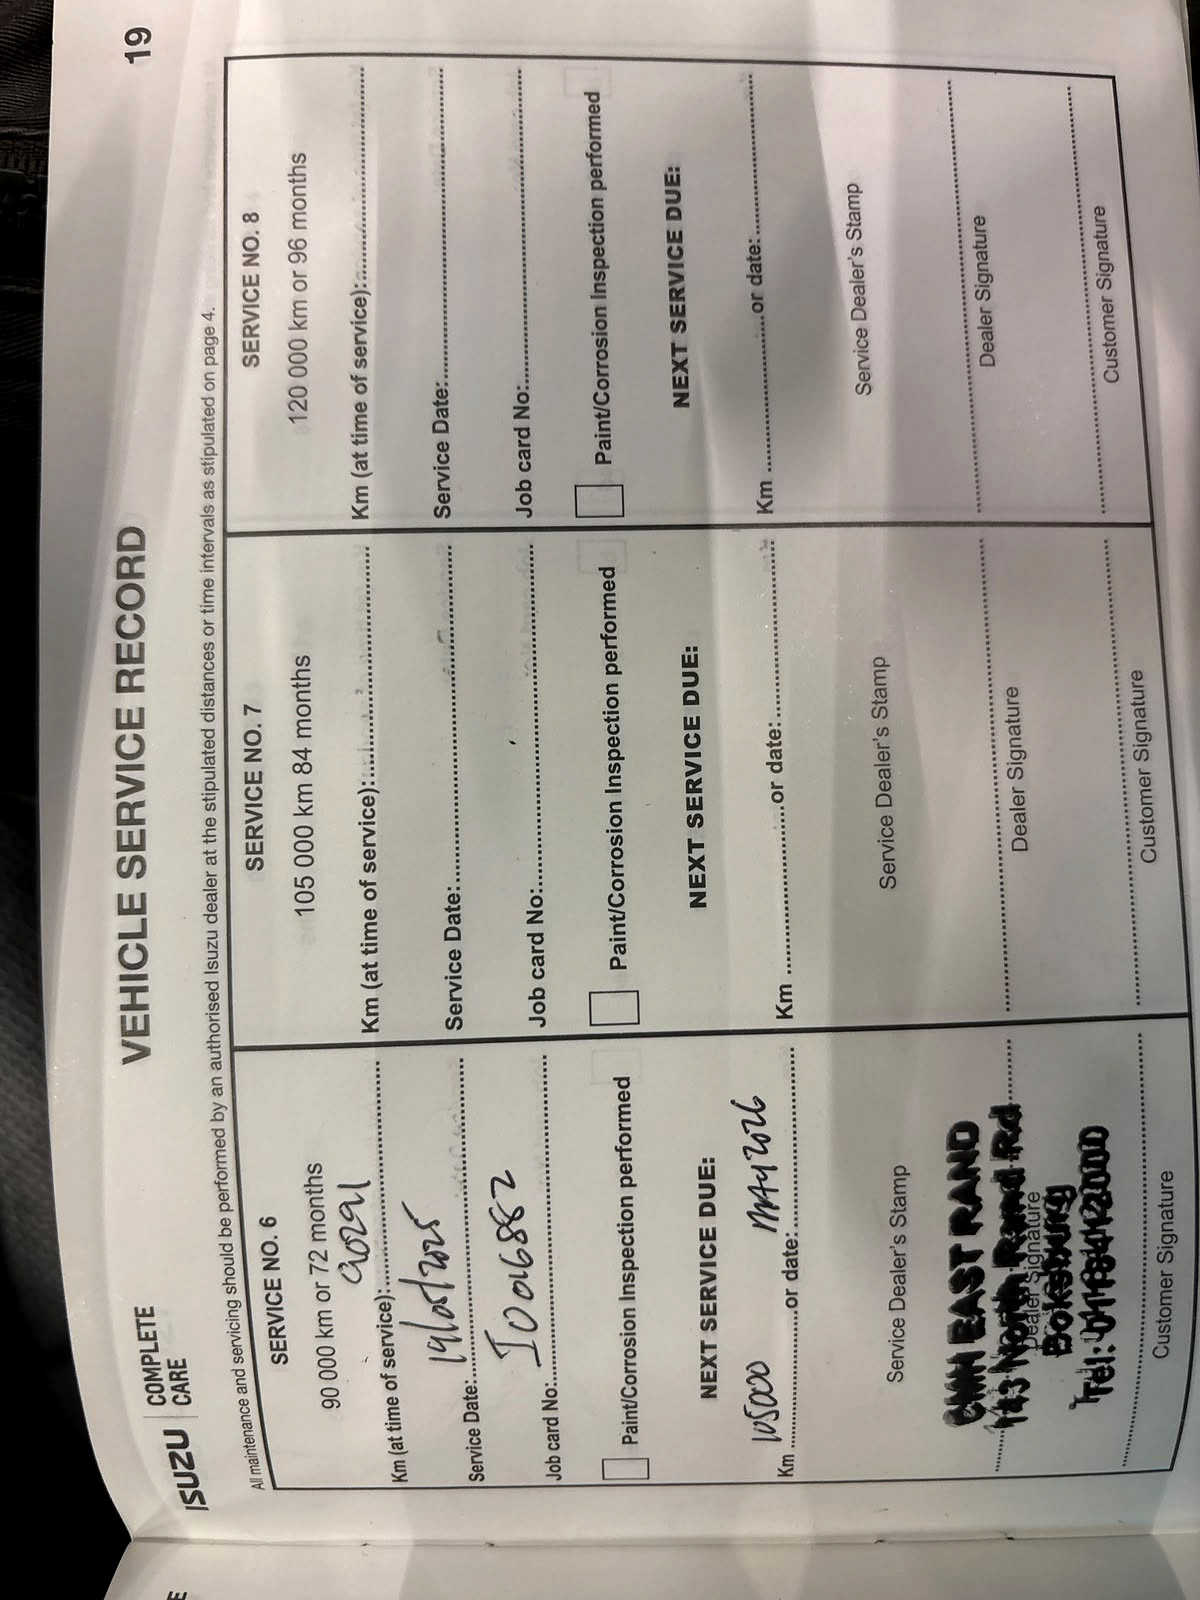 ISUZU COMPLETE CARE
VEHICLE SERVICE RECORD
19
All maintenance and servicing should be performed by an authorised Isuzu dealer at the stipulated distances or time intervals as stipulated on page 4.
SERVICE NO. 6
90 000 km or 72 months
Km (at time of service): 90291
Service Date: 19/05/2025
Job card No: I0016882
Paint/Corrosion Inspection performed
NEXT SERVICE DUE:
Km 105000 or date: MAY 2026
Service Dealer's Stamp
CMH EAST RAND
North Rand Rd
Dealer Signature
Boksburg
Tel:
Customer Signature
SERVICE NO. 7
105 000 km 84 months
Km (at time of service):
Service Date:
Job card No:
Paint/Corrosion Inspection performed
NEXT SERVICE DUE:
Km or date:
Service Dealer's Stamp
Dealer Signature
Customer Signature
SERVICE NO. 8
120 000 km or 96 months
Km (at time of service):
Service Date:
Job card No:
Paint/Corrosion Inspection performed
NEXT SERVICE DUE:
Km or date:
Service Dealer's Stamp
Dealer Signature
Customer Signature